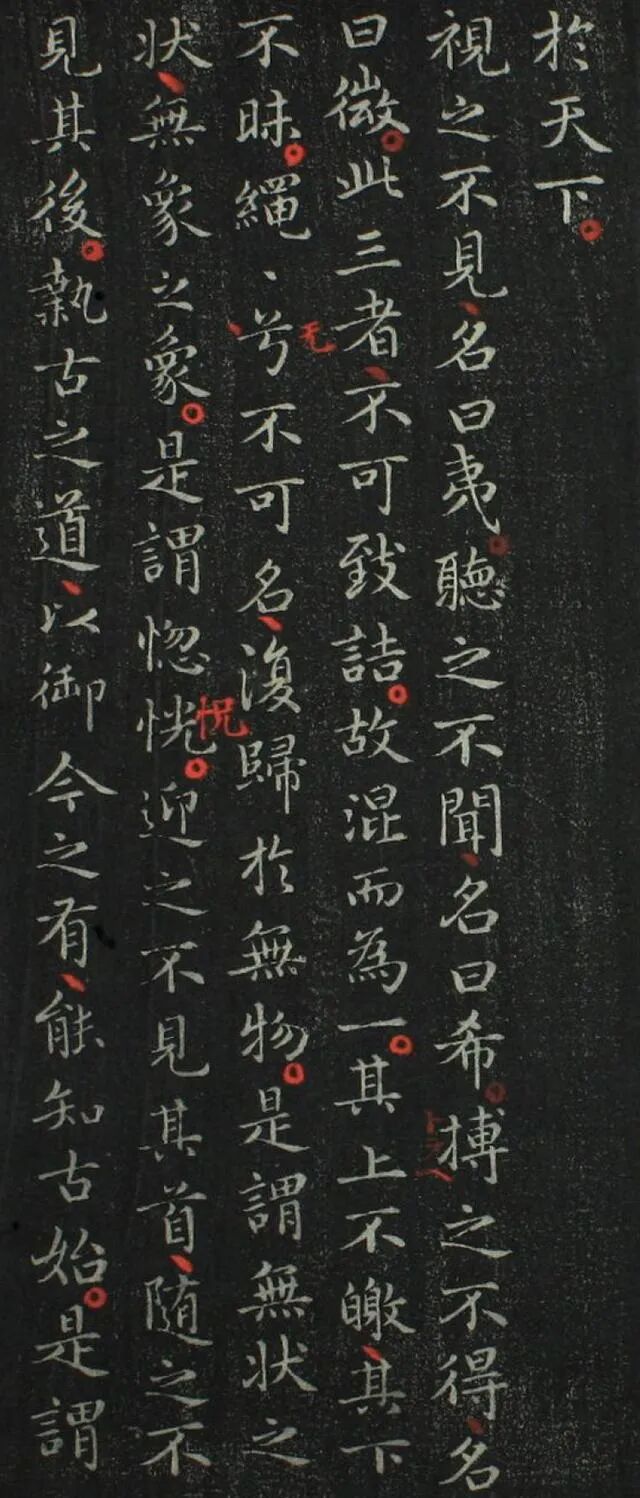 於天下。
視之不見、名曰夷。聽之不聞、名曰希。搏之不得、名
曰微。此三者、不可致詰。故混而為一。其上不皦、其下
不昧。繩、、兮不可名、復歸於無物。是謂無狀之
狀、無象之象。是謂惚恍。迎之不見其首、隨之不
見其後。執古之道、以御今之有、能知古始。是謂
无
怳